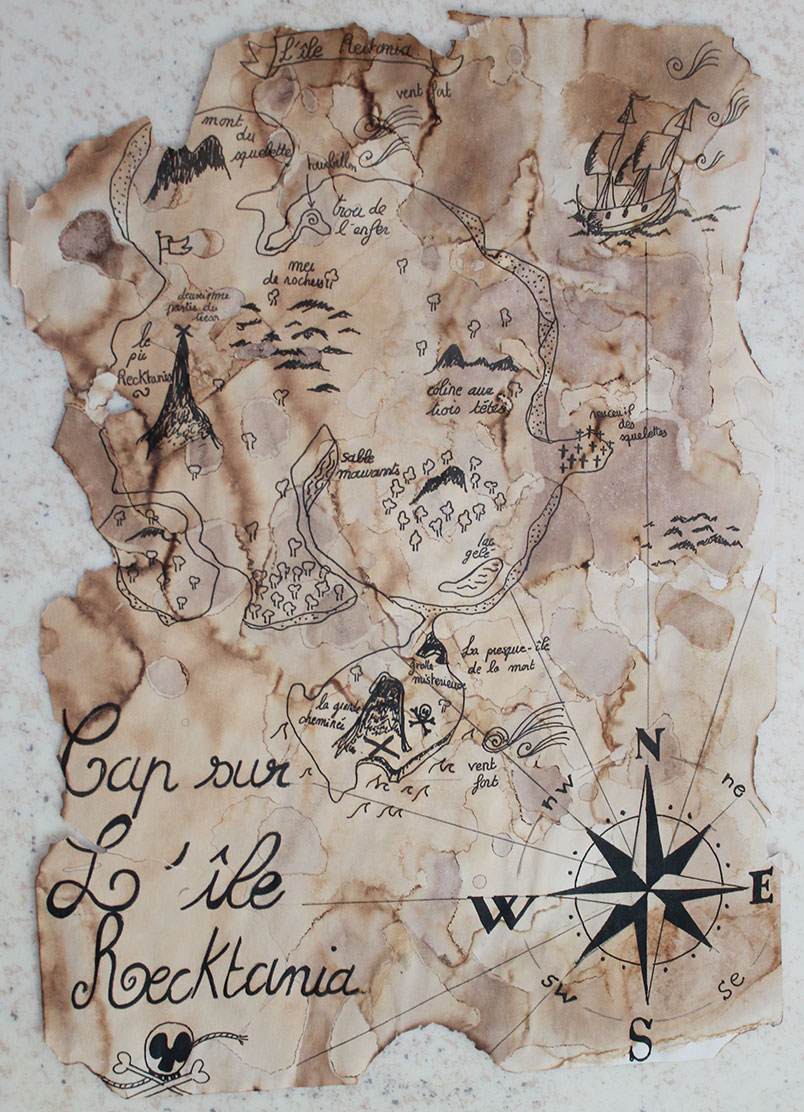 L'île Recktania
vent fort
mont
du
squelette
tourbillon
trou de
l'enfer
mer
de rochers
deuxième
partie du
trésor
le
pic
Recktania
coline aux
trois têtes
des
squelettes
sable
mouvants
lac
gelé
La presque-île
de la mort
grotte
misterieuse
la grande
cheminée
vent
fort
Cap sur
L'île
Recktania
N
nw
ne
W
E
sw
se
S